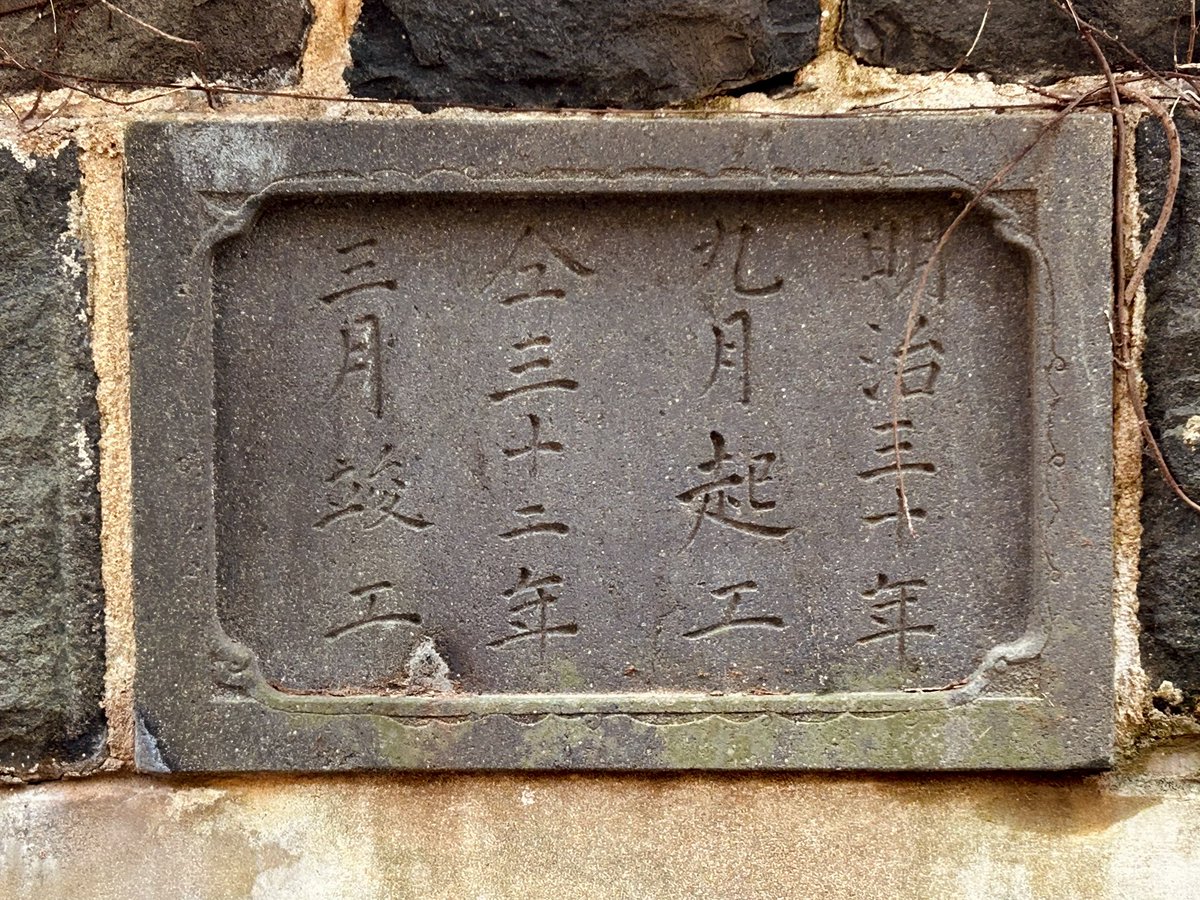 明治三十年
九月起工
仝三十二年
三月竣工